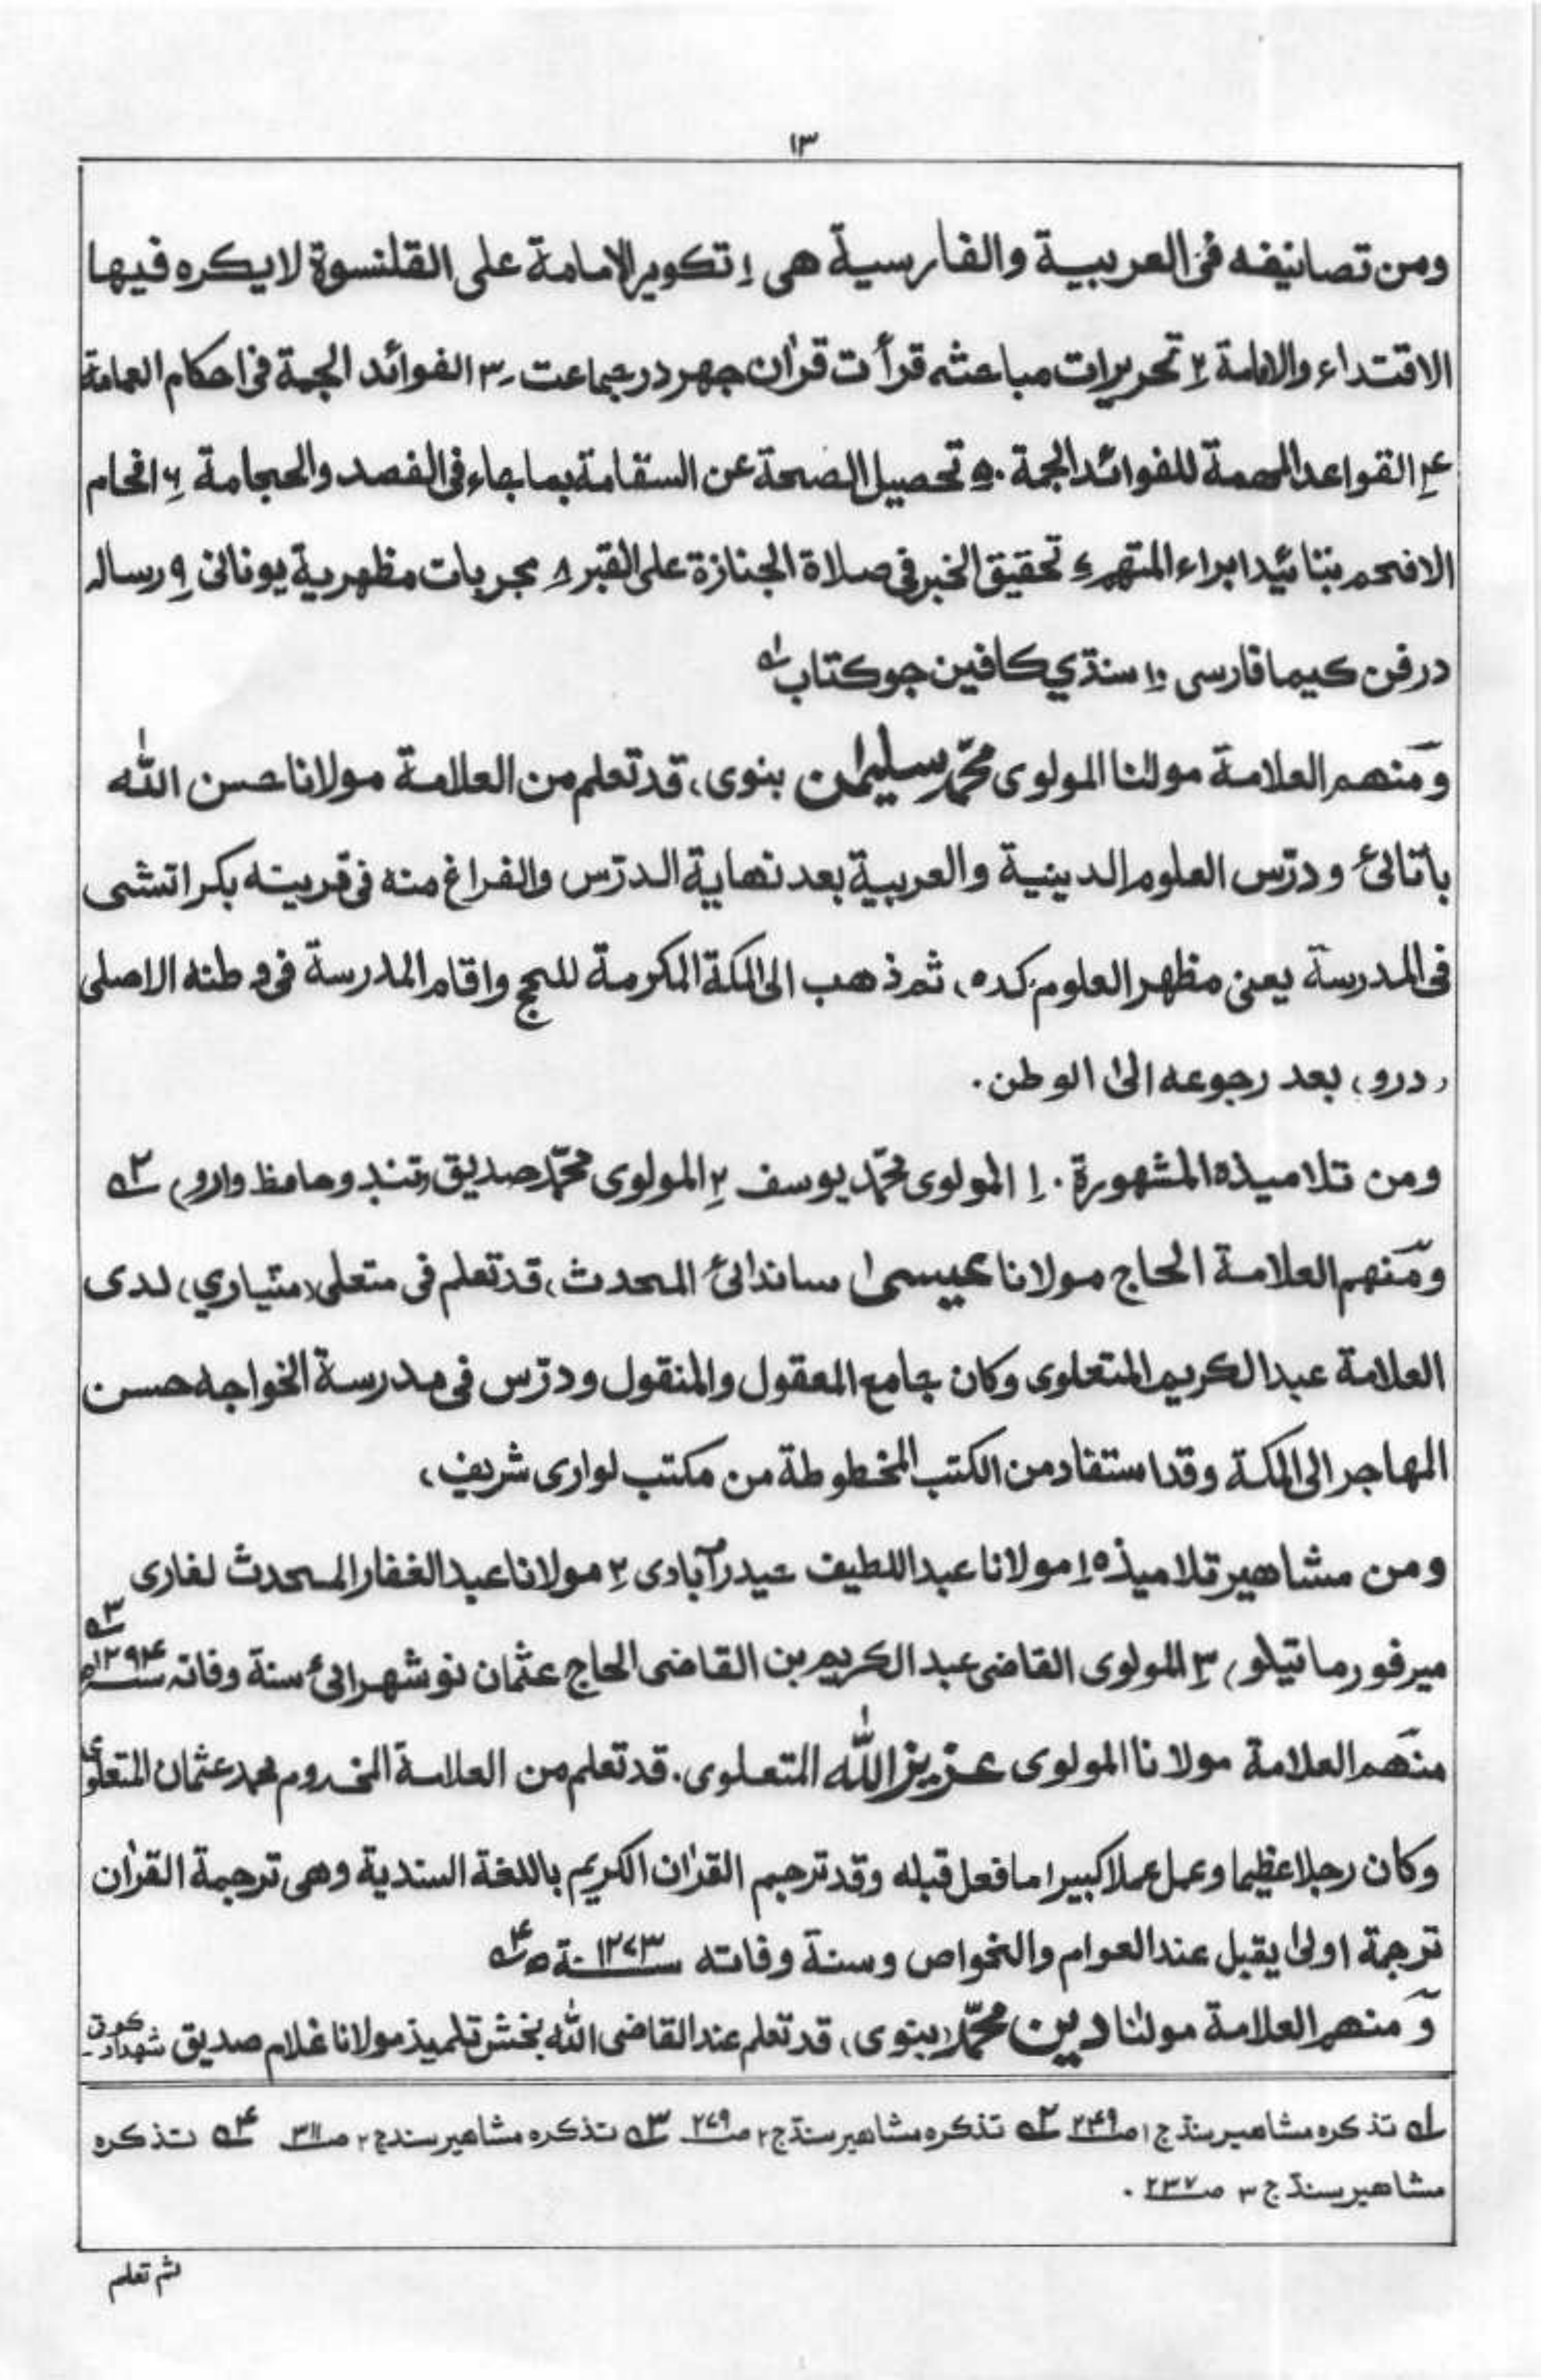 ١٣
ومن تصانيفه فى العربية والفارسية هى ١ تكوير الامامة على القلنسوة لا يكره فيها
الاقتداء والامامة ٢ تحريرات مباحثه قرأت قرأن جهر در جماعت ٣ الفوائد الجمة فى احكام العمامة
۴ القواعد المهمة للفوائد الجمة ۵ تحصيل الصحة عن السقامة بما جاء فى الفصد والحجامة ۶ افحام
الافحم بتائيد ابراء المتهم ٧ تحقيق الخبر فى صلاة الجنازة على القبر ٨ مجربات مظهرية يونانى ٩ رساله
در فن كيما فارسى ١٠ سنڌي كافين جو كتاب ١ه
ومنهم العلامة مولٰنا المولوى محمّد سليمٰن بنوى، قد تعلم من العلامة مولانا حسن الله
پاٽائى ودرّس العلوم الدينية والعربية بعد نهاية الدرّس والفراغ منه فى قريته بكراتشى
فى المدرسة يعنى مظهر العلوم كده، ثم ذهب الى المكة المكرمة للحج واقام المدرسة فى وطنه الاصلى
(درو) بعد رجوعه الىٰ الوطن.
ومن تلاميذه المشهورة. ١ المولوى محمّد يوسف ٢ المولوى محمّد صديق (تندو حافظ وارو) ٢ه
ومنهم العلامة الحاج مولانا عيسىٰ ساندائى المحدث، قد تعلم فى متعلى (متياري) لدى
العلامة عبد الكريم المتعلوى وكان جامع المعقول والمنقول ودرّس فى مدرسة الخواجه حسن
المهاجر الى المكة وقد استفاد من الكتب المخطوطة من مكتب لوارى شريف،
ومن مشاهير تلاميذه ١ مولانا عبد اللطيف حيدرآبادى ٢ مولانا عبد الغفار المحدث لغارى
ميرفور ماتيلو) ٣ المولوى القاضى عبد الكريم بن القاضى الحاج عثمان نو شهرائى سنة وفاته ١٢٩۴ه ٣ه
منهم العلامة مولانا المولوى عزيز الله المتعلوى. قد تعلم من العلامة المخدوم محمد عثمان المتعلوى
وكان رجلا عظيما وعمل عملا كبيرا ما فعل قبله وقد ترجم القراٰن الكريم باللغة السندية وهى ترجمة القراٰن
ترجمة اولىٰ يقبل عند العوام والخواص وسنة وفاته سنة ١٢٧٣ه ۴ه
ومنهم العلامة مولٰنا دين محمّد (بنوى)، قد تعلم عند القاضى الله بخش تلميذ مولانا غلام صديق شهدادكوتى
١ه تذكره مشاهير سنڌ ج ١ صـ ٢۴٩ ٢ه تذكره مشاهير سنڌ ج ٢ صـ ٢٧٩ ٣ه تذكره مشاهير سندج ٢ صـ ٣١١ ۴ه تذكره
مشاهير سنڌ ج ٣ صـ ٢٣٧ .
ثم تعلم